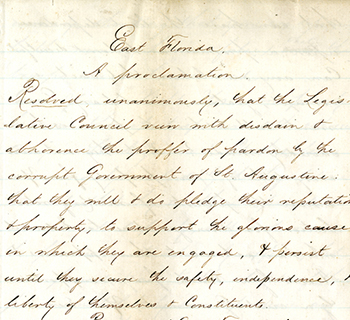 East Florida.
A proclamation.
Resolved unanimously, that the Legis-
lative Council view with disdain &
abhorence the proffer of pardon by the
corrupt Government of St. Augustine:
that they will & do pledge their reputation
& property, to support the glorious cause
in which they are engaged, & persist
until they secure the safety, independence, &
liberty of themselves & Constituents.